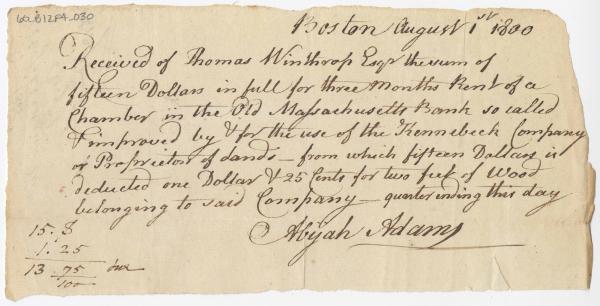 60_B12F4_030
Boston August 1st 1800
Received of Thomas Winthrop Esqr the sum of
fifteen Dollars in full for three Months Rent of a
Chamber in the Old Massachusetts Bank so called
& improved by & for the use of the Kennebeck Company
or Proprietors of Lands — from which fifteen Dollars is
deducted one Dollar & 25 Cents for two feet of Wood
belonging to said Company — quarter ending this day
Abijah Adams
15. $
1. 25
13 75/100 due